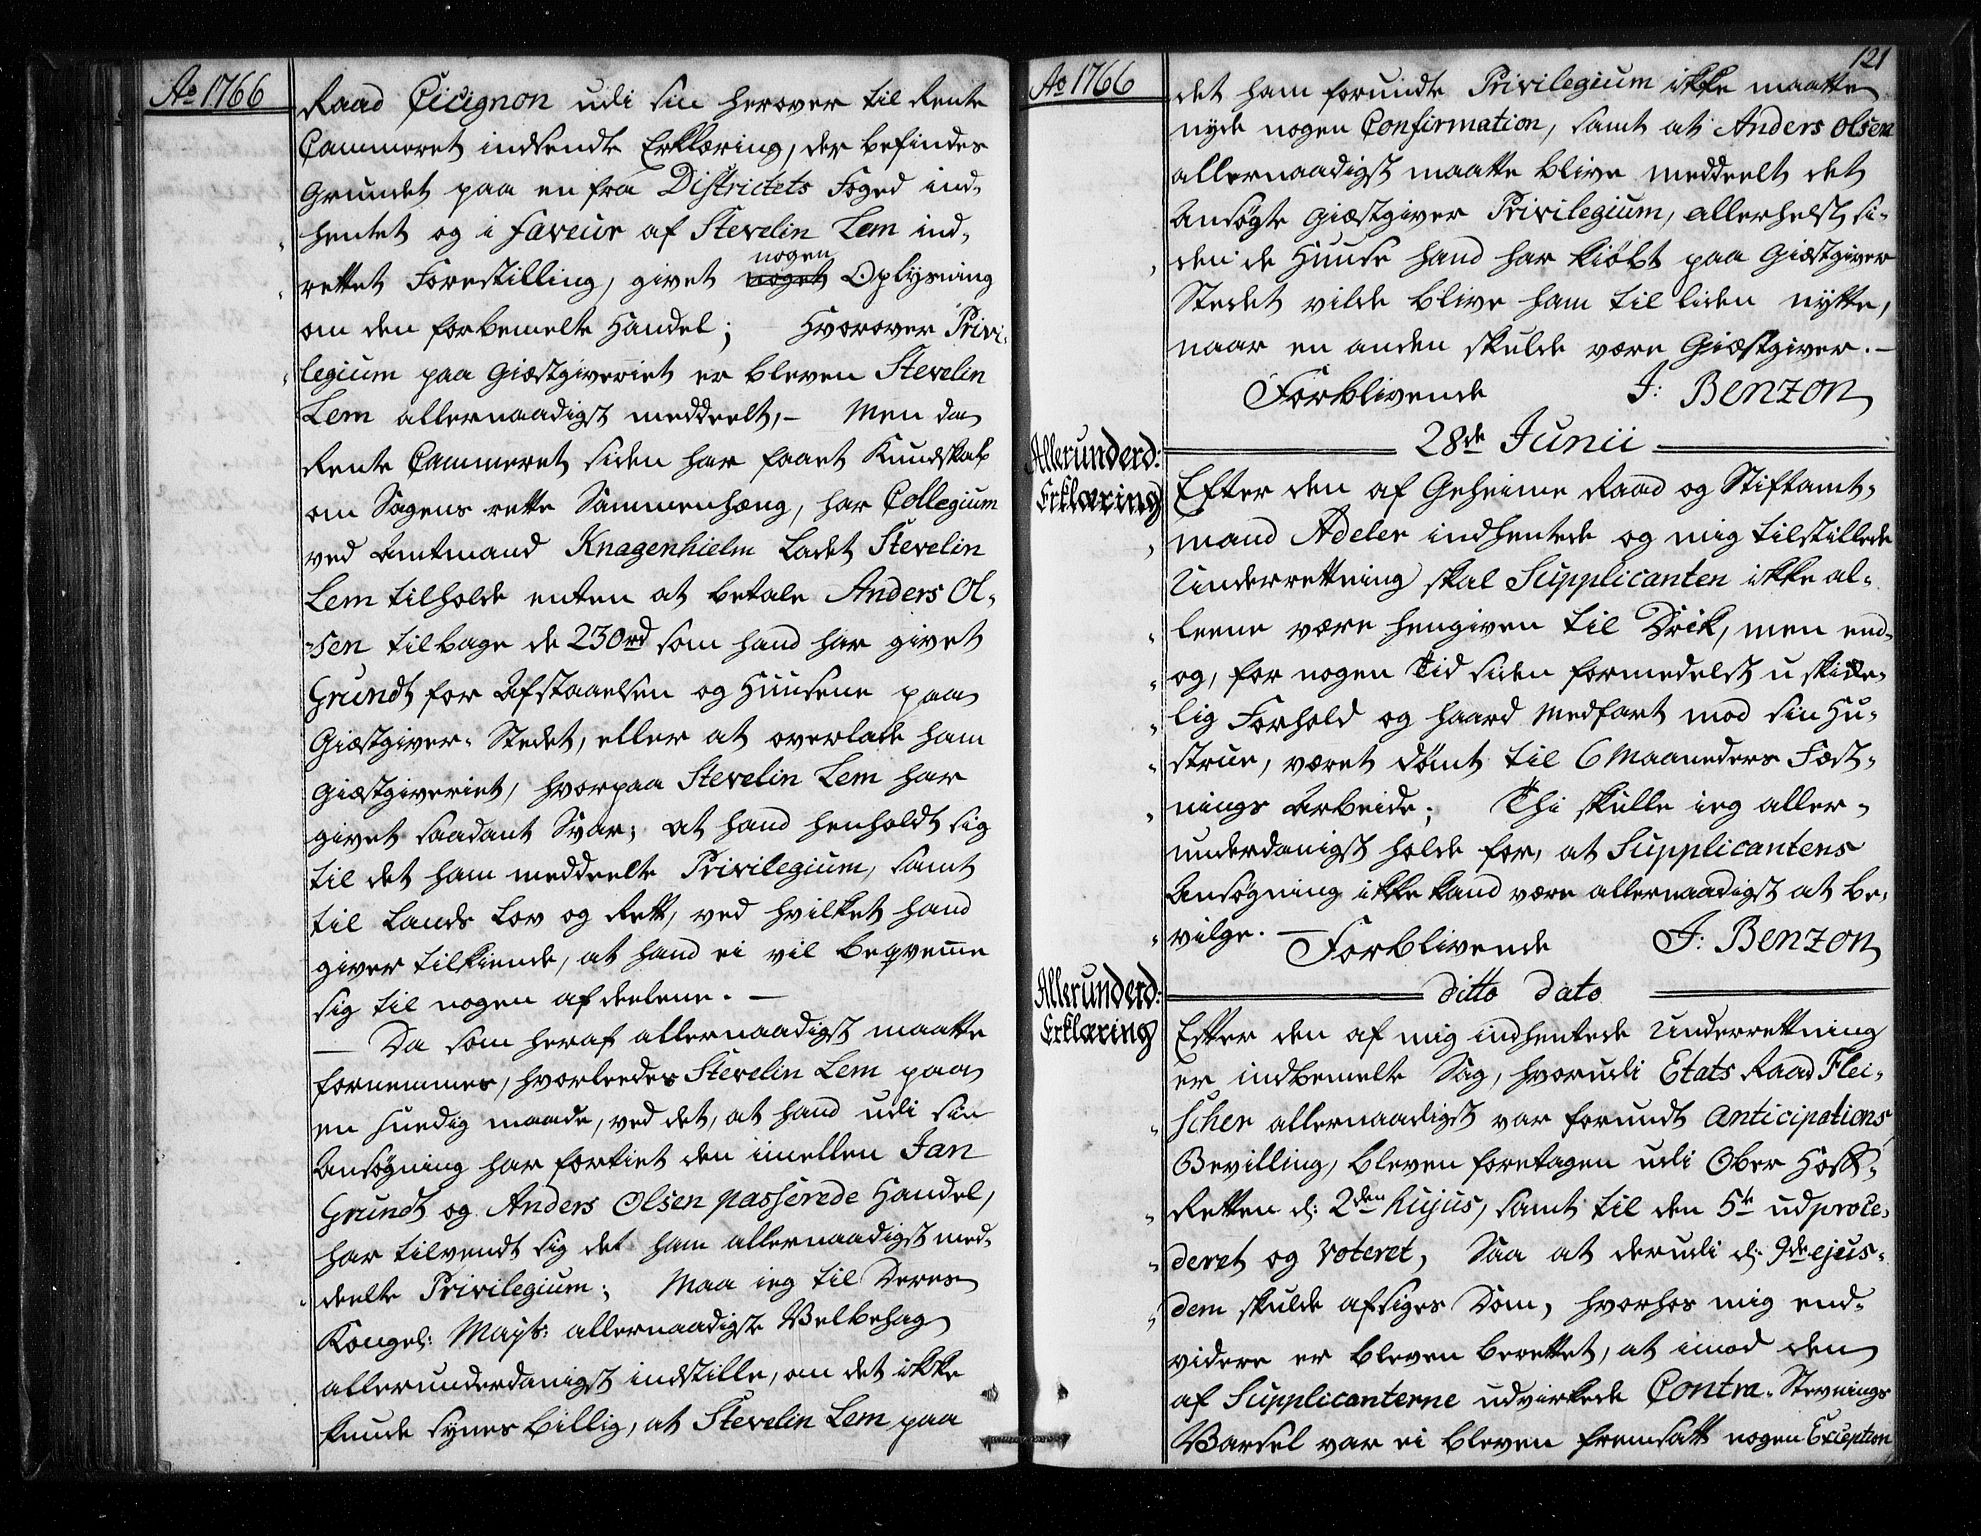 Ao 1766
Raad Cicignon udi sin herover til Rente
Cammeret indsendte Erklæring, der befindes
Grundet paa en fra Districtets Foged ind-
hentet og i faveur af Stevelin Lem ind-
rettet Forestilling, givet nogen Oplysning
om den forbemelte Handel; Hvorover Privi-
legium paa Giæstgiveriet er bleven Stevelin
Lem allernaadigst meddeelt, - Men da
Rente Cammeret siden har faaet Kundskab
om Sagens rette Sammenhæng, har Collegium
ved Amtmand Knagenhielm ladet Stevelin
Lem tilholde enten at betale Anders Ol-
sen tilbage de 230rd som hand har givet
Grundt for Afstaaelsen og Huusene paa
Giæstgiver-Stedet, eller at overlade ham
Giæstgiveriet, hvorpaa Stevelin Lem har
givet saadant Svar; at hand henholdt sig
til det ham meddeelte Privilegium, samt
til Lands Lov og Rett, ved hvilket hand
giver tilkiende, at hand ei vil beqvemme
sig til nogen af deelene. -
- Da som heraf allernaadigst maatte
fornemmes, hvorleedes Stevelin Lem paa
en Suedig maade, ved det, at hand udi sin
Ansøgning har fortiet den imellem Jan
Grundt og Anders Olsen passerede Handel,
har tilvendt sig det ham allernaadigst med-
deelte Privilegium; Maa ieg til Deres
Kongel: Mayts: allernaadigste Velbehag
allerunderdanigst indstille, om det ikke
kunde synes billig, at Stevelin Lem paa
Ao 1766
121
det ham forundte Privilegium ikke maatte
nyde nogen Confirmation, samt at Anders Olsen
allernaadigst maatte blive meddeelt det
Ansøgte Giæstgiver Privilegium, allerhelst si-
den de Huuse hand har kiøbt paa Giæstgiver
Stedet vilde blive ham til liden nytte,
naar en anden skulde være Giæstgiver. -
Forblivende J: Benzon
28de Junii
Allerunderd:
Erklæring
Efter den af Geheime Raad og Stiftamt-
mand Adeler indhentede og mig tilstillede
Underrettning skal Supplicanten ikke al-
leene være hengiven til Drik, men end-
og, for nogen Tid siden formedelst uskikke-
lig Forhold og haard Medfart mod sin Hu-
strue, været dømt til 6 Maaneders Fæst-
nings Arbeide; Thi skulle ieg aller-
underdanigst holde for, at Supplicantens
Ansøgning ikke kand være allernaadigst at be-
vilge. - Forblivende J: Benzon
ditto dato
Allerunderd:
Erklæring
Efter den af mig indhentede Underrettning
er indbemelte Sag, hvorudi Etats Raad Flei-
scher allernaadigst var forundt Anticipations
Bevilling, bleven foretagen udi Ober Hoff-
Retten d: 2den hujus, samt til den 5te udproce-
deret og voteret, Saa at derudi d: 9de ejus-
dem skulde afsiges Dom, hvorhos mig end-
videre er bleven berettet, at imod den
af Supplicanterne udvirkede Contra-Stevnings
Varsel var ei bleven fremsatt nogen Exception